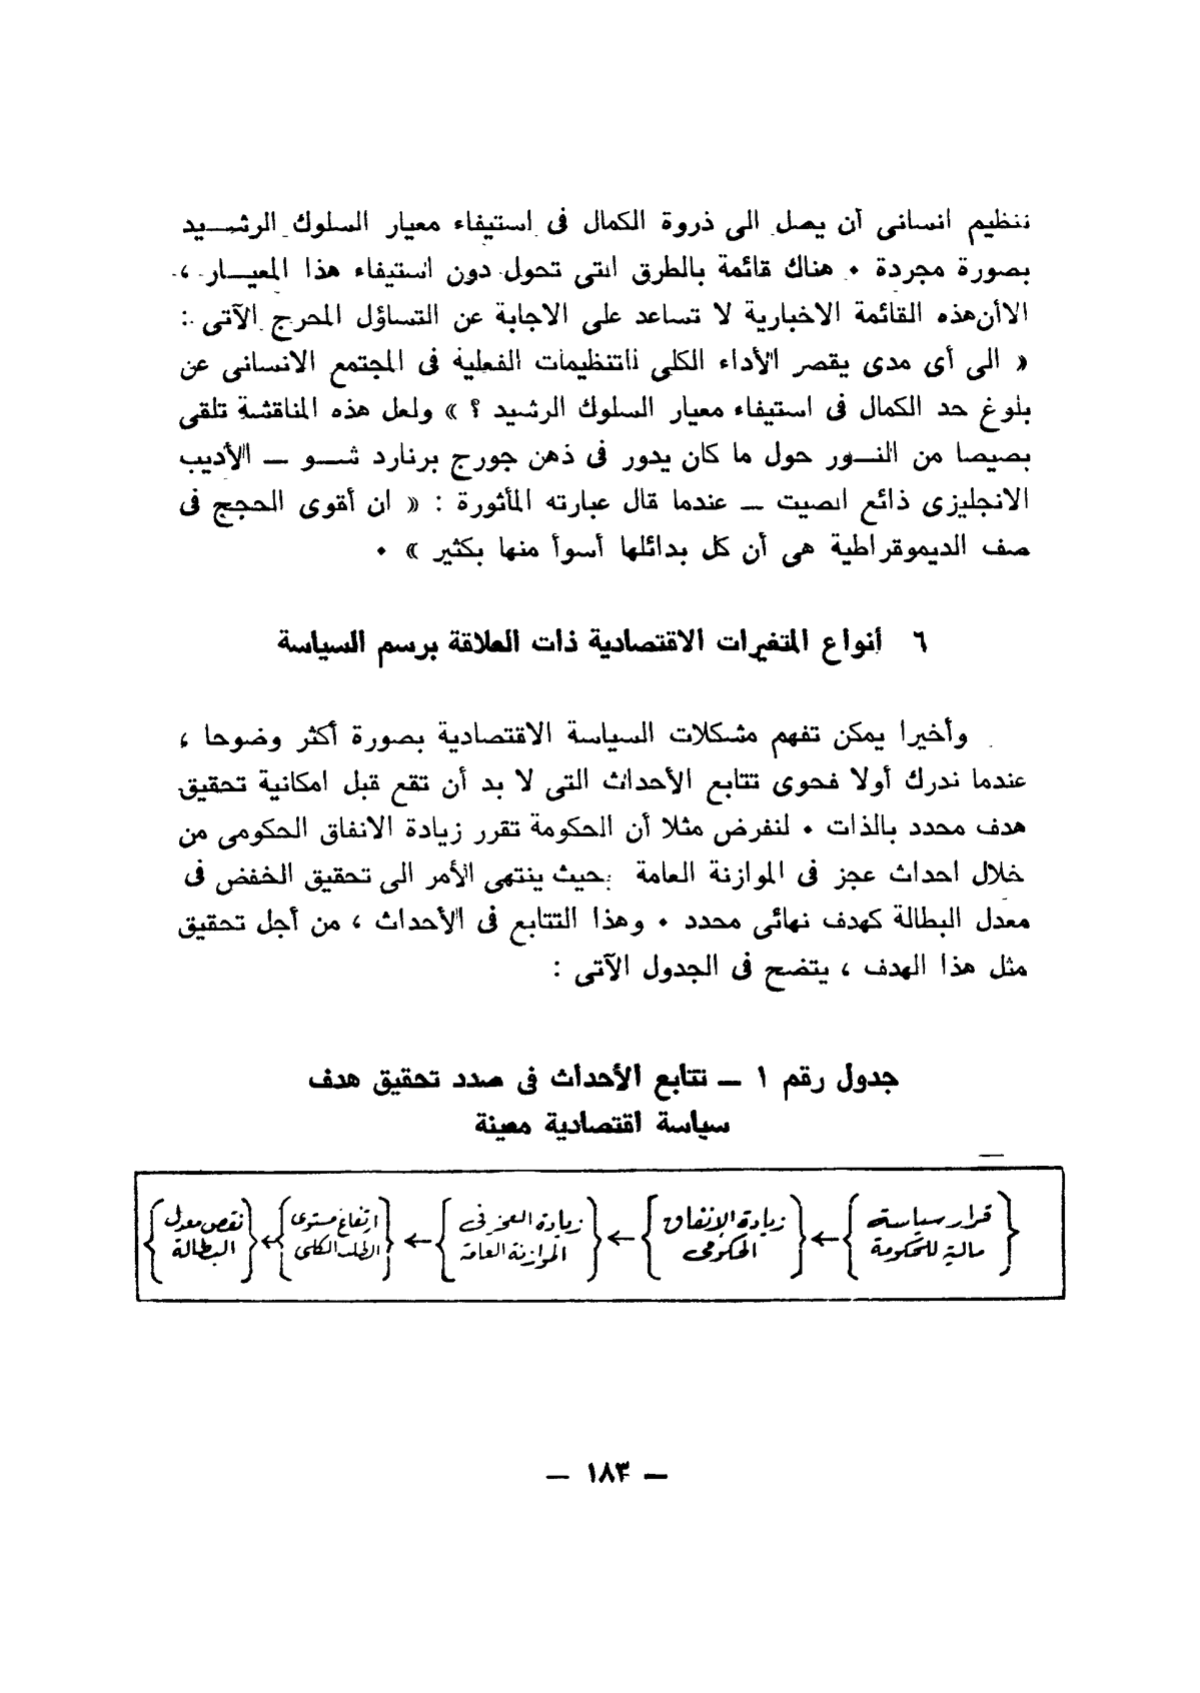 تنظيم انسانى أن يصل الى ذروة الكمال فى استيفاء معيار السلوك الرشـــيد
بصورة مجردة ٠ هناك قائمة بالطرق التى تحول دون استيفاء هذا المعيـــار ،
الاأن هذه القائمة الاخبارية لا تساعد على الاجابة عن التساؤل المحرج الآتى :
« الى أى مدى يقصر الأداء الكلى للتنظيمات الفعلية فى المجتمع الانسانى عن
بلوغ حد الكمال فى استيفاء معيار السلوك الرشيد ؟ » ولعل هذه المناقشة تلقى
بصيصا من النـــور حول ما كان يدور فى ذهن جورج برنارد شـــو ــ الأديب
الانجليزى ذائع الصيت ــ عندما قال عبارته المأثورة : « ان أقوى الحجج فى
صف الديموقراطية هى أن كل بدائلها أسوأ منها بكثير » ٠
٦ أنواع المتغيرات الاقتصادية ذات العلاقة برسم السياسة
وأخيرا يمكن تفهم مشكلات السياسة الاقتصادية بصورة أكثر وضوحا ،
عندما ندرك أولا فحوى تتابع الأحداث التى لا بد أن تقع قبل امكانية تحقيق
هدف محدد بالذات ٠ لنفرض مثلا أن الحكومة تقرر زيادة الانفاق الحكومى من
خلال احداث عجز فى الموازنة العامة بحيث ينتهى الأمر الى تحقيق الخفض فى
معدل البطالة كهدف نهائى محدد ٠ وهذا التتابع فى الأحداث ، من أجل تحقيق
مثل هذا الهدف ، يتضح فى الجدول الآتى :
جدول رقم ١ ــ تتابع الأحداث فى صدد تحقيق هدف
سياسة اقتصادية معينة
{ قرار سياسة ← { زيادة الإنفاق ← { زيادة العجز فى ← { ارتفاع مستوى ← { نقص معدل
مالية للحكومة } الحكومى } الموازنة العامة } الطلب الكلى } البطالة }
— ١٨٣ —